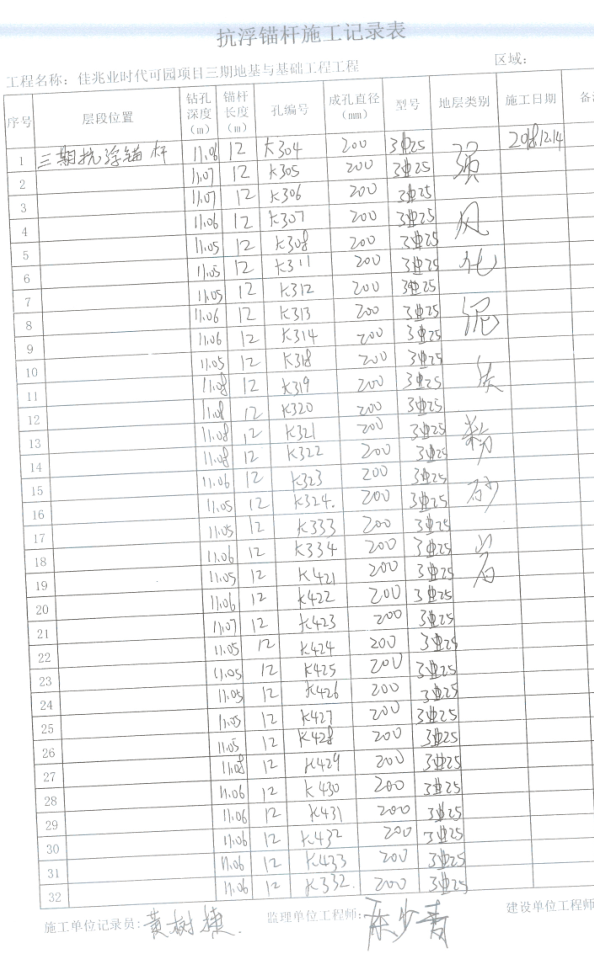 抗浮锚杆施工记录表
工程名称：佳兆业时代可园项目三期地基与基础工程工程 区域：
序号 层段位置 钻孔深度（m） 锚杆长度（m） 孔编号 成孔直径（mm） 型号 地层类别 施工日期 备
1 三期抗浮锚杆 11.06 12 K304 200 3⌀25 强风化泥质粉砂岩 2018.12.14
2 11.07 12 K305 200 3⌀25
3 11.07 12 K306 200 3⌀25
4 11.06 12 K307 200 3⌀25
5 11.05 12 K308 200 3⌀25
6 11.05 12 K311 200 3⌀25
7 11.05 12 K312 200 3⌀25
8 11.06 12 K313 200 3⌀25
9 11.06 12 K314 200 3⌀25
10 11.05 12 K318 200 3⌀25
11 11.08 12 K319 200 3⌀25
12 11.08 12 K320 200 3⌀25
13 11.08 12 K321 200 3⌀25
14 11.08 12 K322 200 3⌀25
15 11.06 12 K323 200 3⌀25
16 11.05 12 K324. 200 3⌀25
17 11.05 12 K333 200 3⌀25
18 11.06 12 K334 200 3⌀25
19 11.05 12 K421 200 3⌀25
20 11.06 12 K422 200 3⌀25
21 11.07 12 K423 200 3⌀25
22 11.05 12 K424 200 3⌀25
23 11.05 12 K425 200 3⌀25
24 11.05 12 K426 200 3⌀25
25 11.05 12 K427 200 3⌀25
26 11.05 12 K428 200 3⌀25
27 11.08 12 K429 200 3⌀25
28 11.06 12 K430 200 3⌀25
29 11.06 12 K431 200 3⌀25
30 11.06 12 K432 200 3⌀25
31 11.06 12 K433 200 3⌀25
32 11.06 12 K332. 200 3⌀25
施工单位记录员：黄树捷. 监理单位工程师： 少青 建设单位工程师